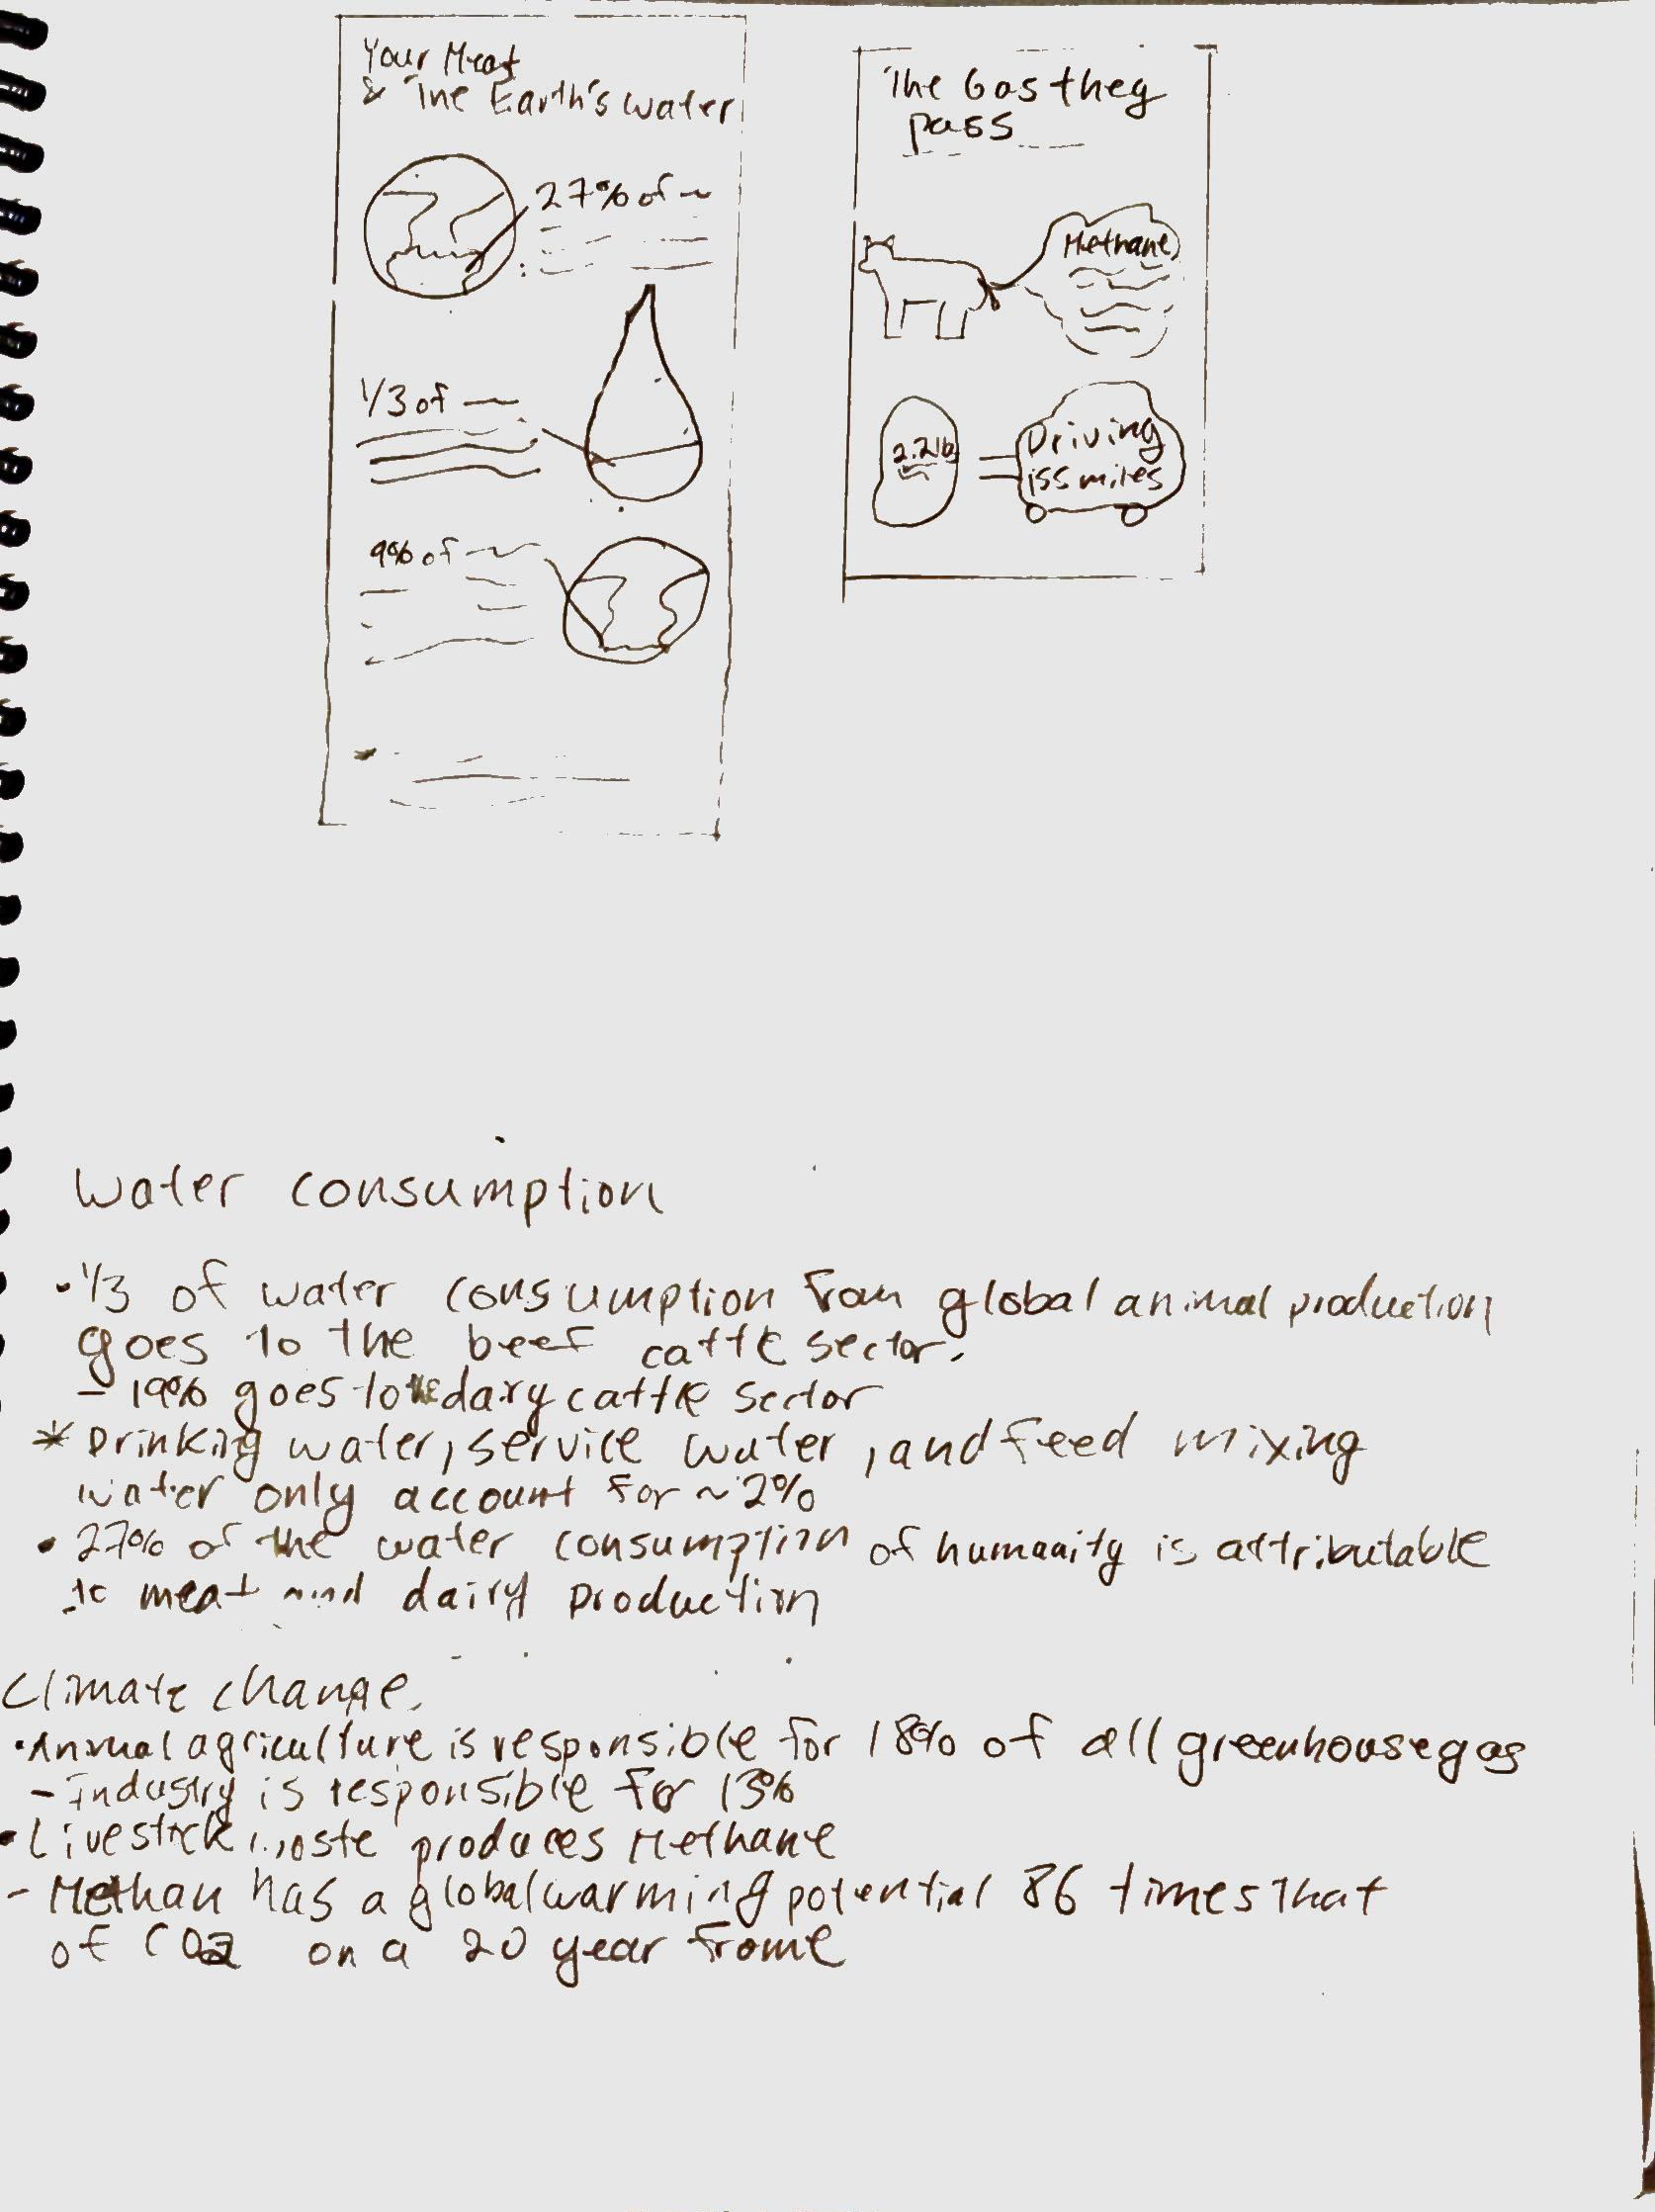 Your Meat
& The Earth's water
27% of
1/3 of
9% of
The Gas they
pass
Methane
2.2lb
Driving
155 miles
Water consumption
• 1/3 of water consumption from global animal production
goes to the beef cattle sector.
- 19% goes to the dary cattle sector
* Drinking water, service water, and feed mixing
water only account for ~2%
• 27% of the water consumption of humanity is attributable
to meat and dairy production
Climate change.
• Animal agriculture is responsible for 18% of all greenhouse gas
- Industry is responsible for 13%
• Livestock waste produces Methane
- Methan has a global warming potential 86 times that
of CO2 on a 20 year frame